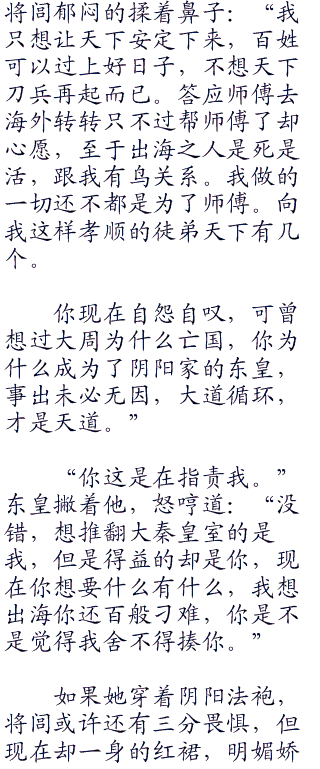 将闾郁闷的揉着鼻子：“我
只想让天下安定下来，百姓
可以过上好日子，不想天下
刀兵再起而已。答应师傅去
海外转转只不过帮师傅了却
心愿，至于出海之人是死是
活，跟我有鸟关系。我做的
一切还不都是为了师傅。向
我这样孝顺的徒弟天下有几
个。
你现在自怨自叹，可曾
想过大周为什么亡国，你为
什么成为了阴阳家的东皇，
事出未必无因，大道循环，
才是天道。”
“你这是在指责我。”
东皇撇着他，怒哼道：“没
错，想推翻大秦皇室的是
我，但是得益的却是你，现
在你想要什么有什么，我想
出海你还百般刁难，你是不
是觉得我舍不得揍你。”
如果她穿着阴阳法袍，
将闾或许还有三分畏惧，但
现在却一身的红裙，明媚娇